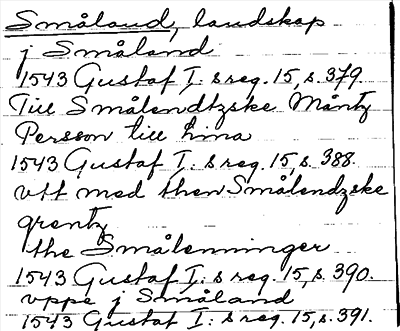 Småland, landskap
j Småland
1543 Gustaf I: s reg. 15, s. 379.
Till Smålendtzske Måntz
Persson till hina
1543 Gustaf I: s reg. 15, s. 388.
vtt med then Smålendzske
grentz
the Smålenninger
1543 Gustaf I: s reg. 15, s. 390.
vppe j Småland
1543 Gustaf I: s reg. 15, s. 391.